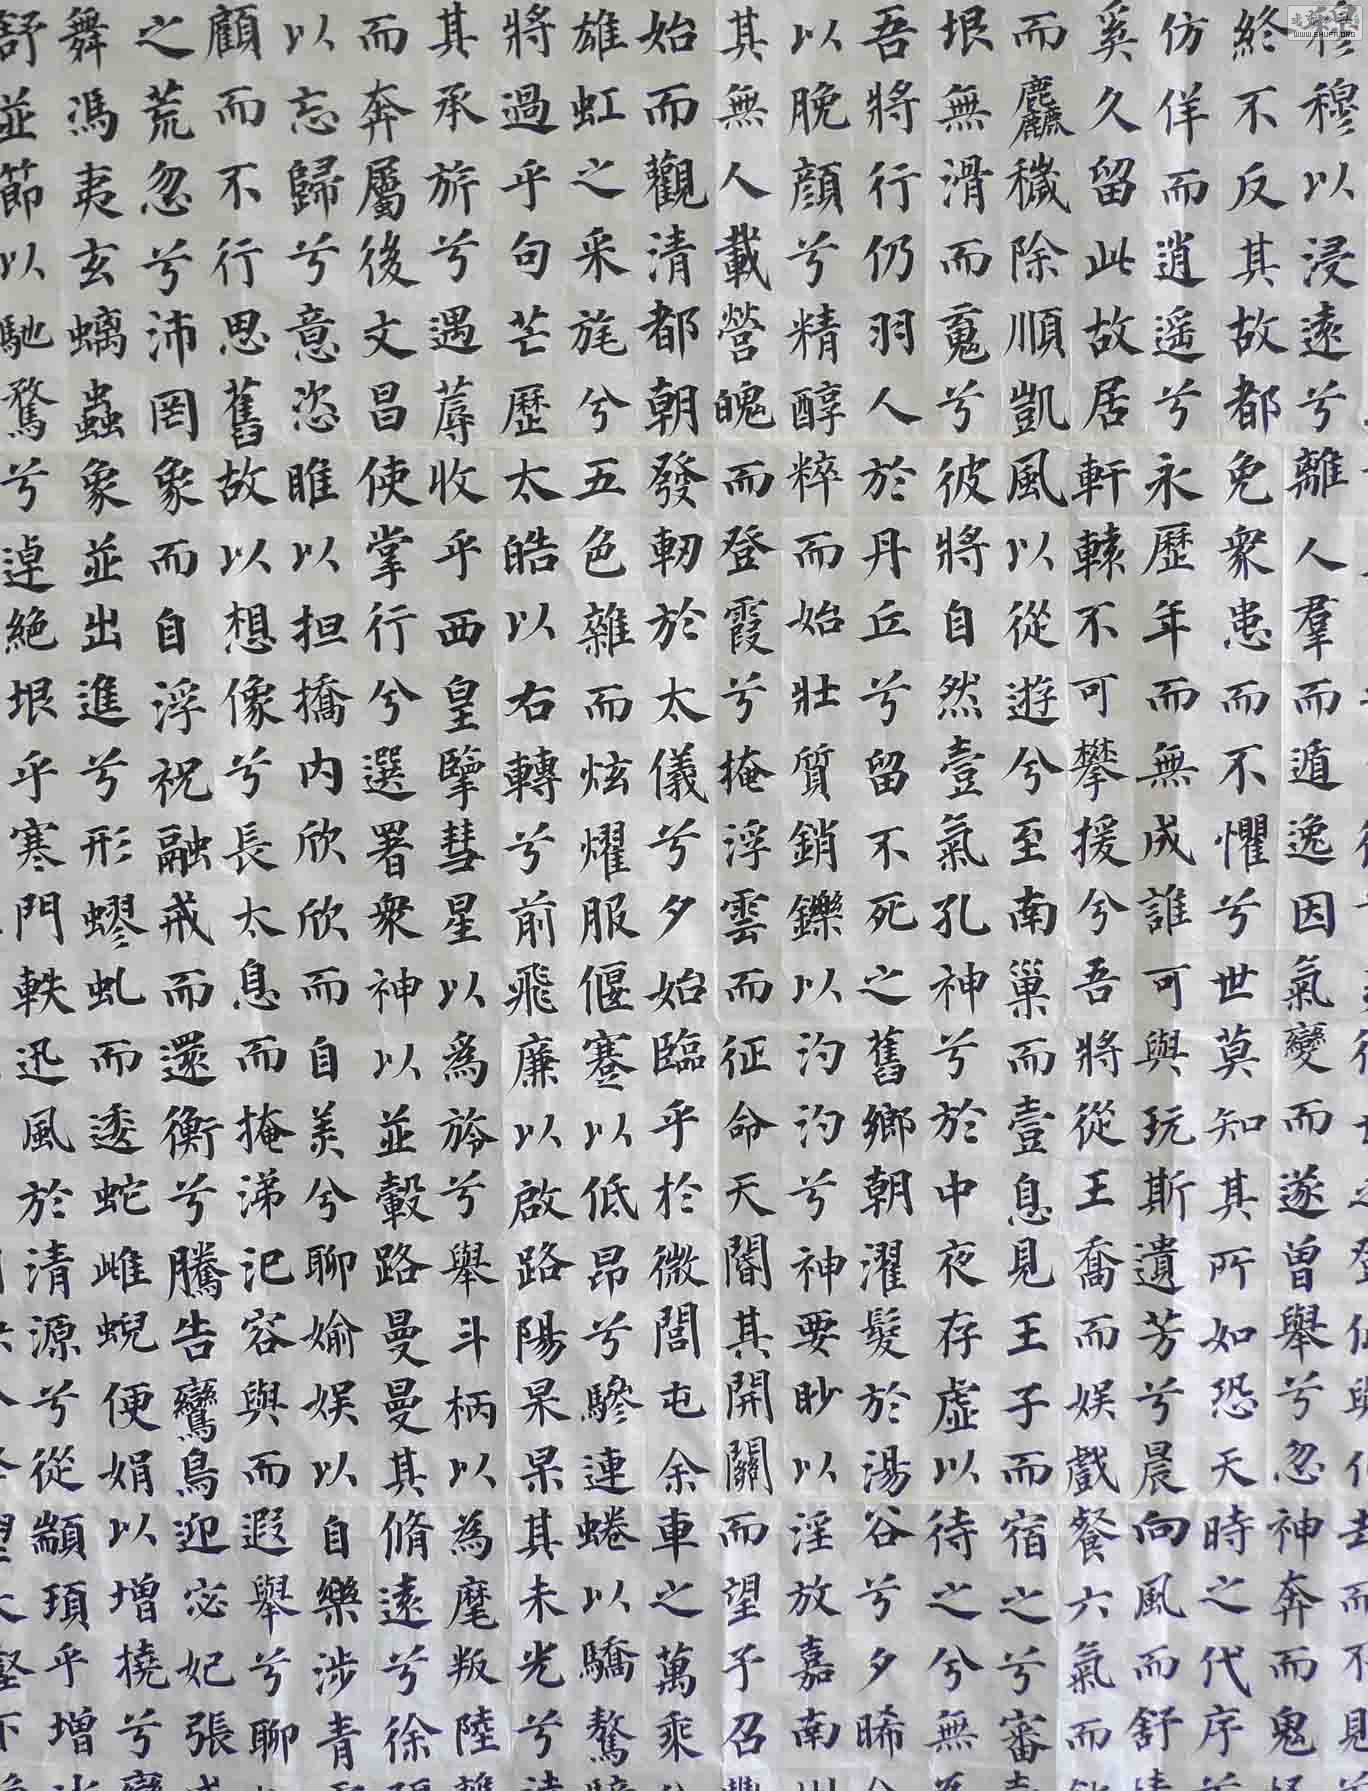 穆穆以浸遠兮離人羣而遁逸因氣變而遂曾舉兮忽神奔而鬼
終不反其故都免衆患而不懼兮世莫知其所如恐天時之代序
仿佯而逍遥兮永歷年而無成誰可與玩斯遺芳兮晨向風而舒
奚久留此故居軒轅不可攀援兮吾將從王喬而娱戲餐六氣而
而麤穢除順凱風以從遊兮至南巢而壹息見王子而宿之兮審
垠無滑而䰟兮彼將自然壹氣孔神兮於中夜存虚以待之兮無
吾將行仍羽人於丹丘兮留不死之舊鄉朝濯髮於湯谷兮夕晞
以脕顔兮精醇粹而始壯質銷鑠以汋汋兮神要眇以淫放嘉南
其無人載營魄而登霞兮掩浮雲而征命天閽其開關而望予召
始而觀清都朝發軔於太儀兮夕始臨乎於微閭屯余車之萬乘
雄虹之采旄兮五色雜而炫燿服偃蹇以低昂兮驂連蜷以驕驁
將過乎句芒歷太皓以右轉兮前飛廉以啟路陽杲杲其未光兮
其承旂兮遇蓐收乎西皇擥彗星以爲旍兮舉斗柄以為麾叛陸
而奔屬後文昌使掌行兮選署衆神以並轂路曼曼其脩遠兮徐
以忘歸兮意恣睢以担撟内欣欣而自美兮聊媮娱以自樂涉青
顧而不行思舊故以想像兮長太息而掩涕氾容與而遐舉兮聊
之荒忽兮沛罔象而自浮祝融戒而還衡兮騰告鸞鳥迎宓妃張
舞馮夷玄螭蟲象並出進兮形蟉虬而逶蛇雌蜺便娟以增撓兮
舒並節以馳騖兮逴絶垠乎寒門軼迅風於清源兮從顓頊乎增